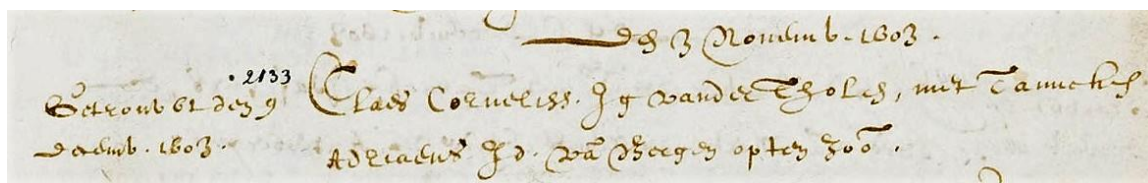 den 3 Novemb. 1603.
. 2133
Getrouwt den 9
decemb. 1603.
Claes Corneliss. Jg vander Tholen, met Tanneken
Adriaens Jd. vā Bergen opten Zoō.